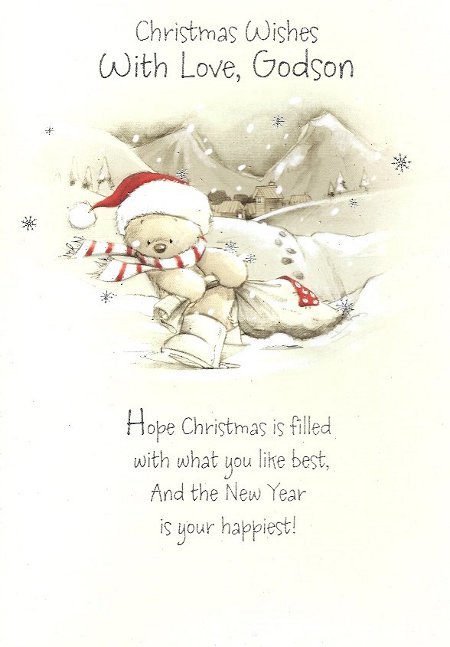 Christmas Wishes
With Love, Godson
Hope Christmas is filled
with what you like best,
And the New Year
is your happiest!